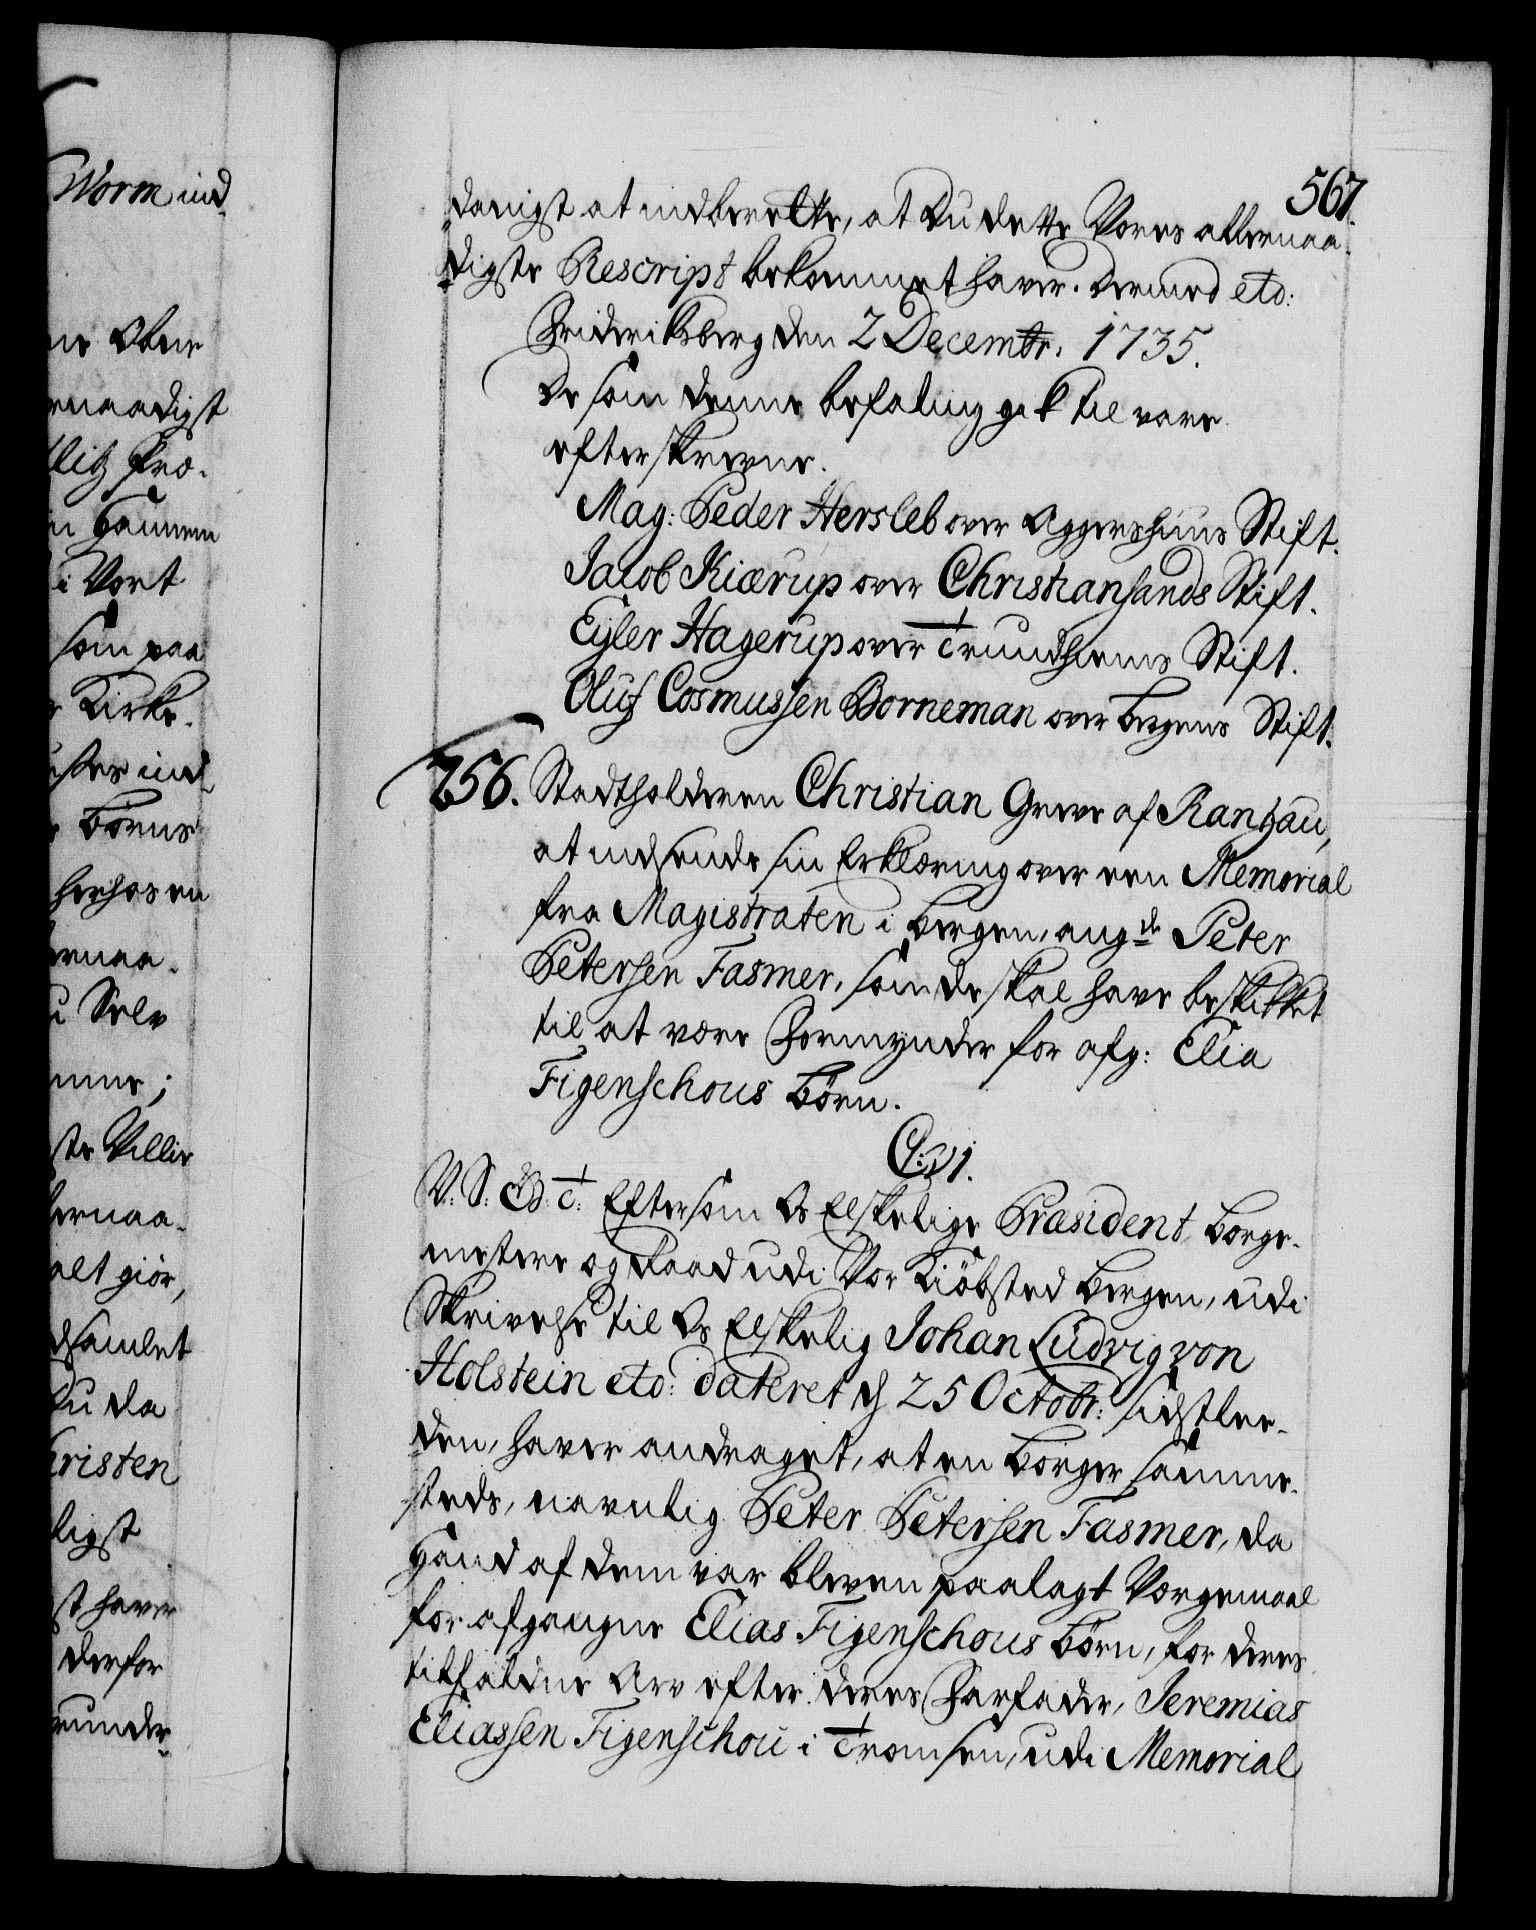 Worm ind
567.
danigst at indberette, at Du dette Vores allernaa-
digste Rescript bekommet haver. Dermed etc:
Friderichsberg den 2 Decembr. 1735.
De som denne befaling gik til vare
efterskrevne.
Mag: Peder Hersleb over Aggershuus Stift.
Jacob Kiærup over Christiansands Stift.
Eyler Hagerup over Trundhiems Stift.
Oluf Cosmussen Borneman over Bergens Stift.
256. Stadtholderen Christian Greve af Rantzau,
at indsende sin Erklæring over een Memorial
fra Magistraten i Bergen, angde Peter
Petersen Fasmer, som de skal have beskikket
til at være Formynder for afg: Elia
Figenschous Børn.
C: VI.
V: S: G: T: Eftersom Os Elskelige Præsident, Borge-
mestere og Raad udi Vor Kiøbsted Bergen, udi
Skrivelse til Os Elskelig Johan Ludvig von
Holstein etc: dateret d 25 Octobr: sidstlee-
den, haver andraget, at en Borger samme-
steds, navnlig Peter Petersen Fasmer, da
Hand af dem var bleven paalagt Værgemaal
for afgangne Elias Figenschous Børn, for deres
tilfaldne Arv efter deres Farfader, Jeremias
Eliassen Figenschou i Tromsen, udi Memorial
ernaadigst
i Vort
som paa
Kirke.
Børns
u Selv
alt giør,
Du da
ligst
st haver
derfor